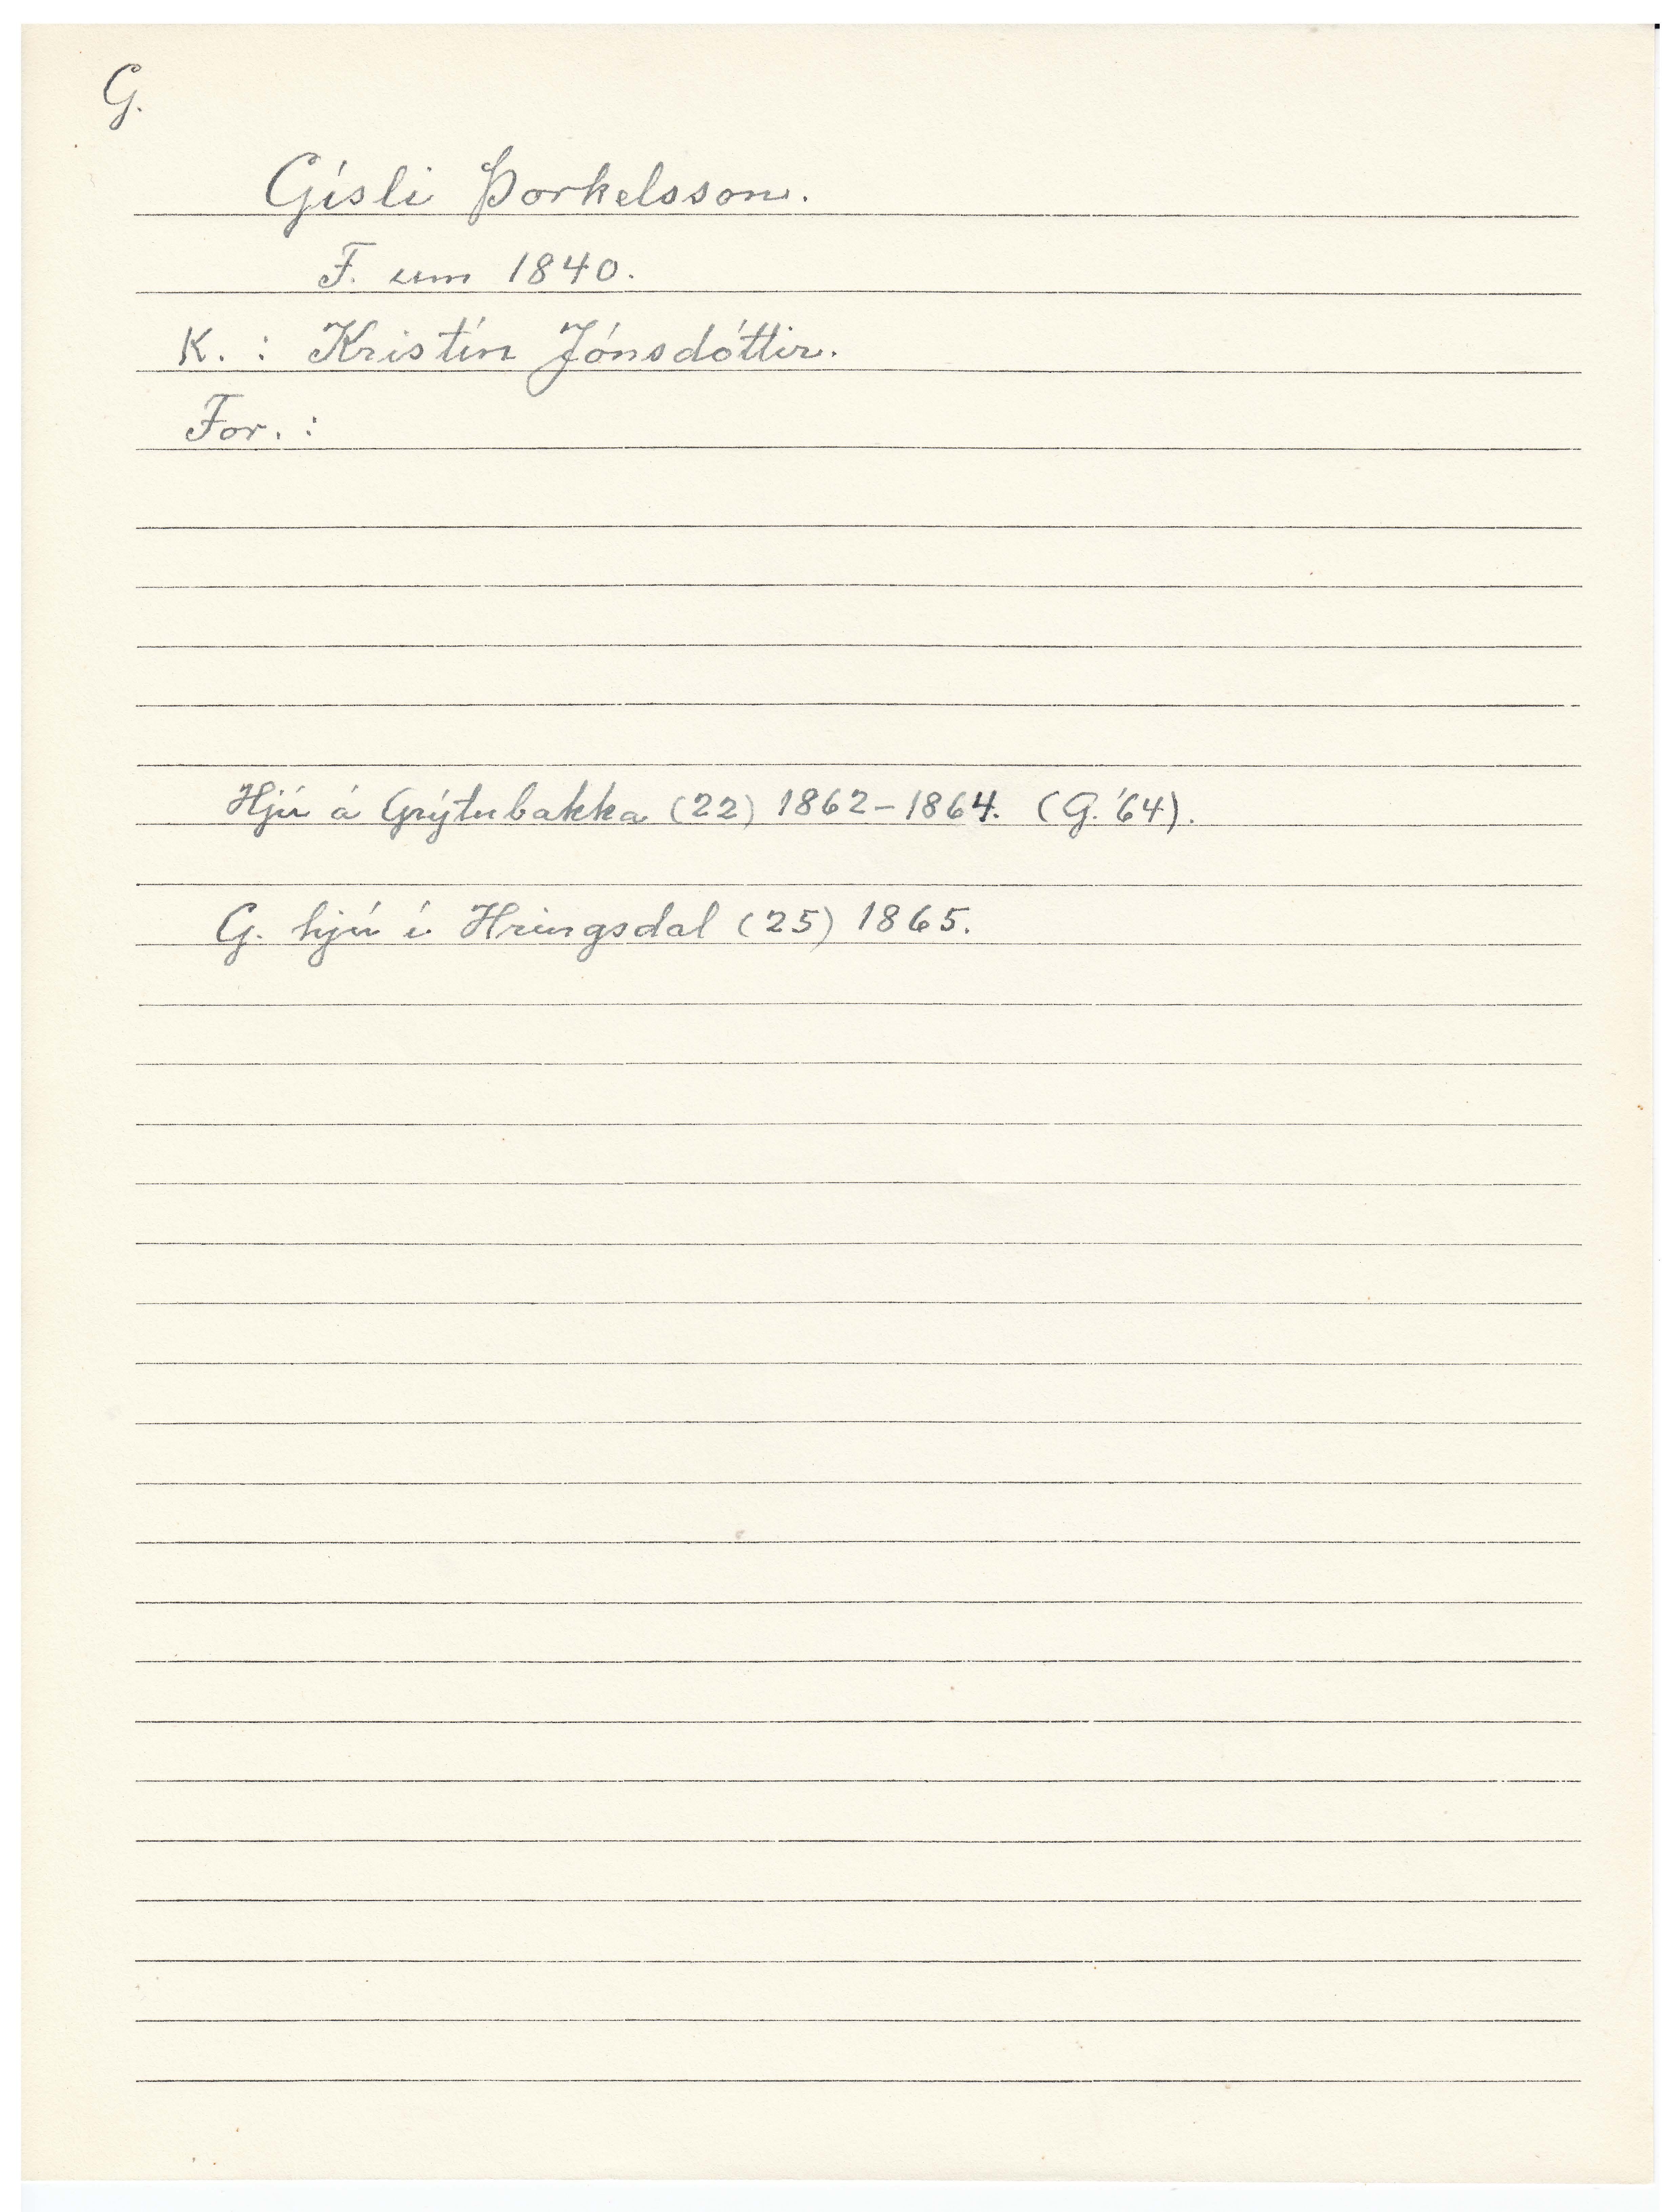 G.
Gísli Þorkelsson.
F. um 1840.
K. : Kristín Jónsdóttir.
For. :
Hjú á Grýtubakka (22) 1862-1864. (G. '64).
G. hjú í Hringsdal (25) 1865.